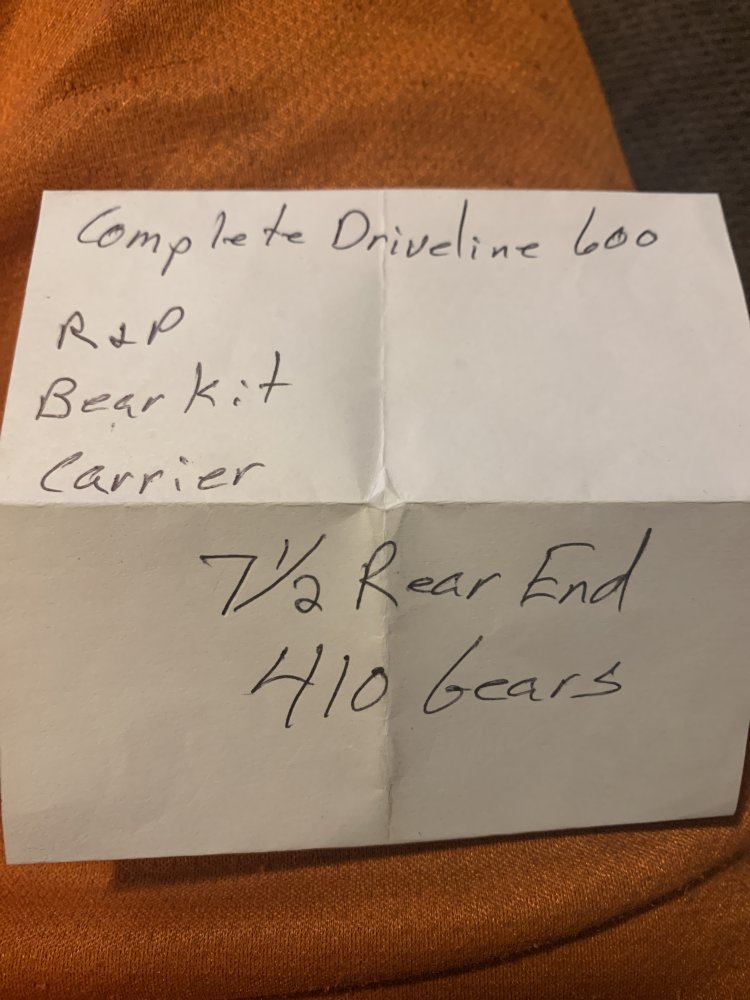 Complete Driveline 600
R&P
Bear Kit
Carrier
7 1/2 Rear End
410 Gears